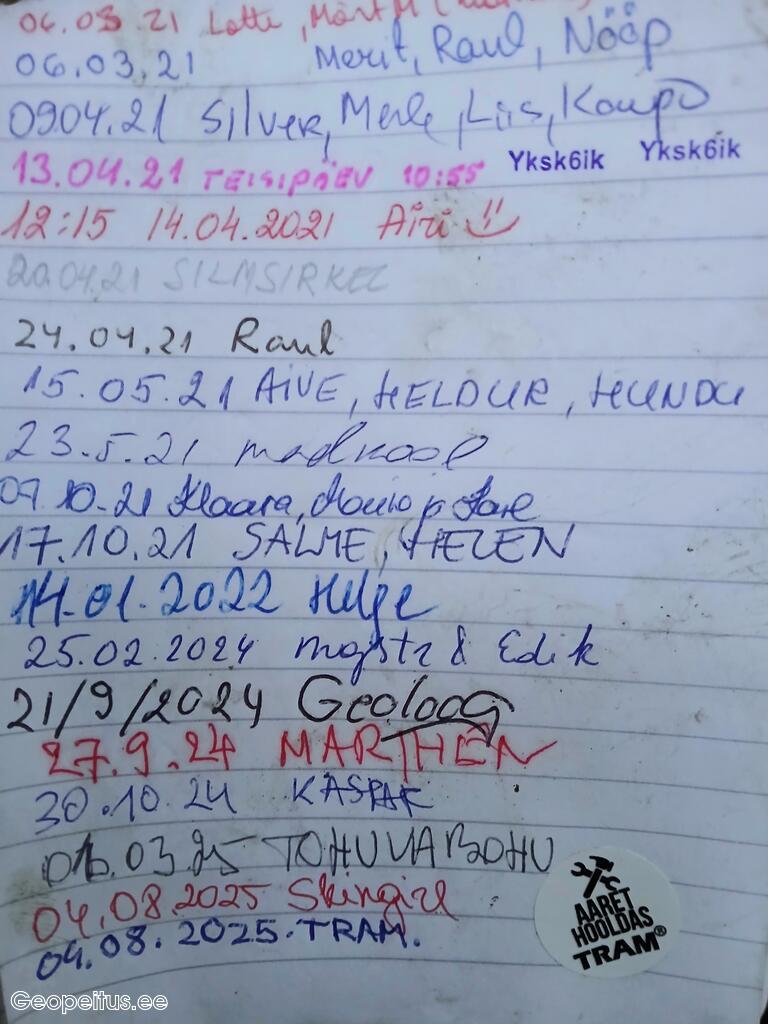 06.03.21 Lotte, Märt M
06.03.21 Merit, Raul, Nööp
09.04.21 Silver, Merle, Liis, Kaupo
13.04.21 TEISIPÄEV 10:55 Yksk6ik Yksk6ik
12:15 14.04.2021 Airi
20.04.21 SILMSIRKEL
24.04.21 Raul
15.05.21 AIVE, HELDUR, HUNDU
23.5.21 madkool
07.10.21 Klaara, ja
17.10.21 SALME, HELEN
14.01.2022 Helge
25.02.2024 mgstr & Edik
21/9/2024 Geoloog
27.9.24 MARTHEN
30.10.24 KASPAR
03.25 TOHUVABOHU
04.08.2025 Skingirl
04.08.2025. TRAM.
AARET
HOOLDAS
TRAM®
Geopeitus.ee